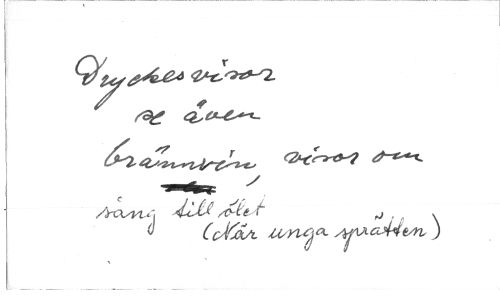 Dryckesvisor
se även
brännvin, visor om
sång till ölet
(När unga sprätten)